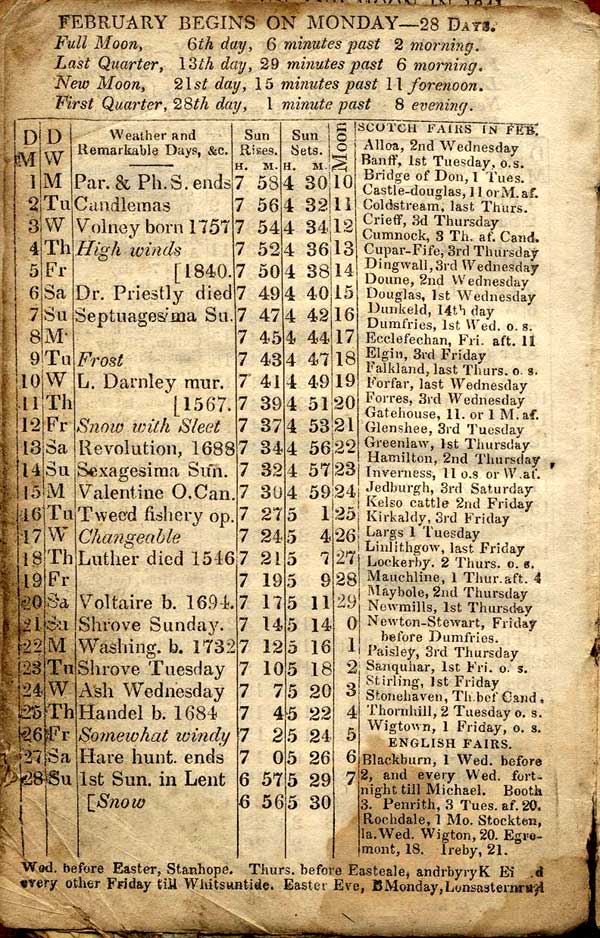 FEBRUARY BEGINS ON MONDAY—28 DAYS.
Full Moon, 6th day, 6 minutes past 2 morning.
Last Quarter, 13th day, 29 minutes past 6 morning.
New Moon, 21st day, 15 minutes past 11 forenoon.
First Quarter, 28th day, 1 minute past 8 evening.
D M D W Weather and Remarkable Days, &c. Sun Rises. H. M. Sun Sets. H. M. Moon
1 M Par. & Ph. S. ends 7 58 4 30 10
2 Tu Candlemas 7 56 4 32 11
3 W Volney born 1757 7 54 4 34 12
4 Th High winds 7 52 4 36 13
5 Fr [1840. 7 50 4 38 14
6 Sa Dr. Priestly died 7 49 4 40 15
7 Su Septuagesima Su. 7 47 4 42 16
8 M 7 45 4 44 17
9 Tu Frost 7 43 4 47 18
10 W L. Darnley mur. 7 41 4 49 19
11 Th [1567. 7 39 4 51 20
12 Fr Snow with Sleet 7 37 4 53 21
13 Sa Revolution, 1688 7 34 4 56 22
14 Su Sexagesima Sun. 7 32 4 57 23
15 M Valentine O.Can. 7 30 4 59 24
16 Tu Tweed fishery op. 7 27 5 1 25
17 W Changeable 7 24 5 4 26
18 Th Luther died 1546 7 21 5 7 27
19 Fr 7 19 5 9 28
20 Sa Voltaire b. 1694. 7 17 5 11 29
21 Su Shrove Sunday. 7 14 5 14 0
22 M Washing. b. 1732 7 12 5 16 1
23 Tu Shrove Tuesday 7 10 5 18 2
24 W Ash Wednesday 7 7 5 20 3
25 Th Handel b. 1684 7 4 5 22 4
26 Fr Somewhat windy 7 2 5 24 5
27 Sa Hare hunt. ends 7 0 5 26 6
28 Su 1st Sun. in Lent 6 57 5 29 7
[Snow 6 56 5 30
SCOTCH FAIRS IN FEB.
Alloa, 2nd Wednesday
Banff, 1st Tuesday, o.s.
Bridge of Don, 1 Tues.
Castle-douglas, 11 or M. af.
Coldstream, last Thurs.
Crieff, 3d Thursday
Cumnock, 3 Th. af. Cand.
Cupar-Fife, 3rd Thursday
Dingwall, 3rd Wednesday
Doune, 2nd Wednesday
Douglas, 1st Wednesday
Dunkeld, 14th day
Dumfries, 1st Wed. o. s.
Ecclefechan, Fri. aft. 11
Elgin, 3rd Friday
Falkland, last Thurs. o. s.
Forfar, last Wednesday
Forres, 3rd Wednesday
Gatehouse, 11. or 1 M. af.
Glenshee, 3rd Tuesday
Greenlaw, 1st Thursday
Hamilton, 2nd Thursday
Inverness, 11 o.s or W.af.
Jedburgh, 3rd Saturday
Kelso cattle 2nd Friday
Kirkaldy, 3rd Friday
Largs 1 Tuesday
Linlithgow, last Friday
Lockerby. 2 Thurs. o. s.
Mauchline, 1 Thur. aft. 4
Maybole, 2nd Thursday
Newmills, 1st Thursday
Newton-Stewart, Friday
before Dumfries.
Paisley, 3rd Thursday
Sanquhar, 1st Fri. o. s.
Stirling, 1st Friday
Stonehaven, Th.bef Cand.
Thornhill, 2 Tuesday o. s.
Wigtown, 1 Friday, o. s.
ENGLISH FAIRS.
Blackburn, 1 Wed. before
2, and every Wed. fort-
night till Michael. Booth
3. Penrith, 3 Tues. af. 20.
Rochdale, 1 Mo. Stockten,
la. Wed. Wigton, 20. Egre-
mont, 18. Ireby, 21.
Wed. before Easter, Stanhope. Thurs. before Easteale, andrbyryK
every other Friday till Whitsuntide. Easter Eve,